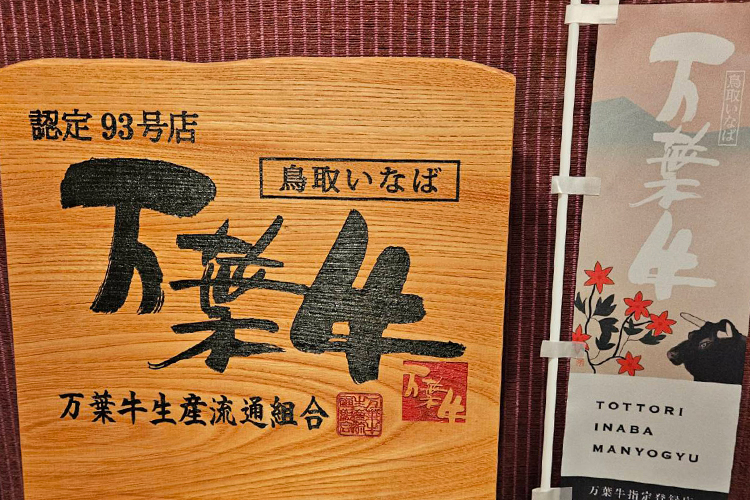 認定93号店
鳥取いなば
万葉牛
万葉牛生産流通組合
万葉牛
鳥取いなば
万葉牛
TOTTORI
INABA
MANYOGYU
万葉牛指定登録店